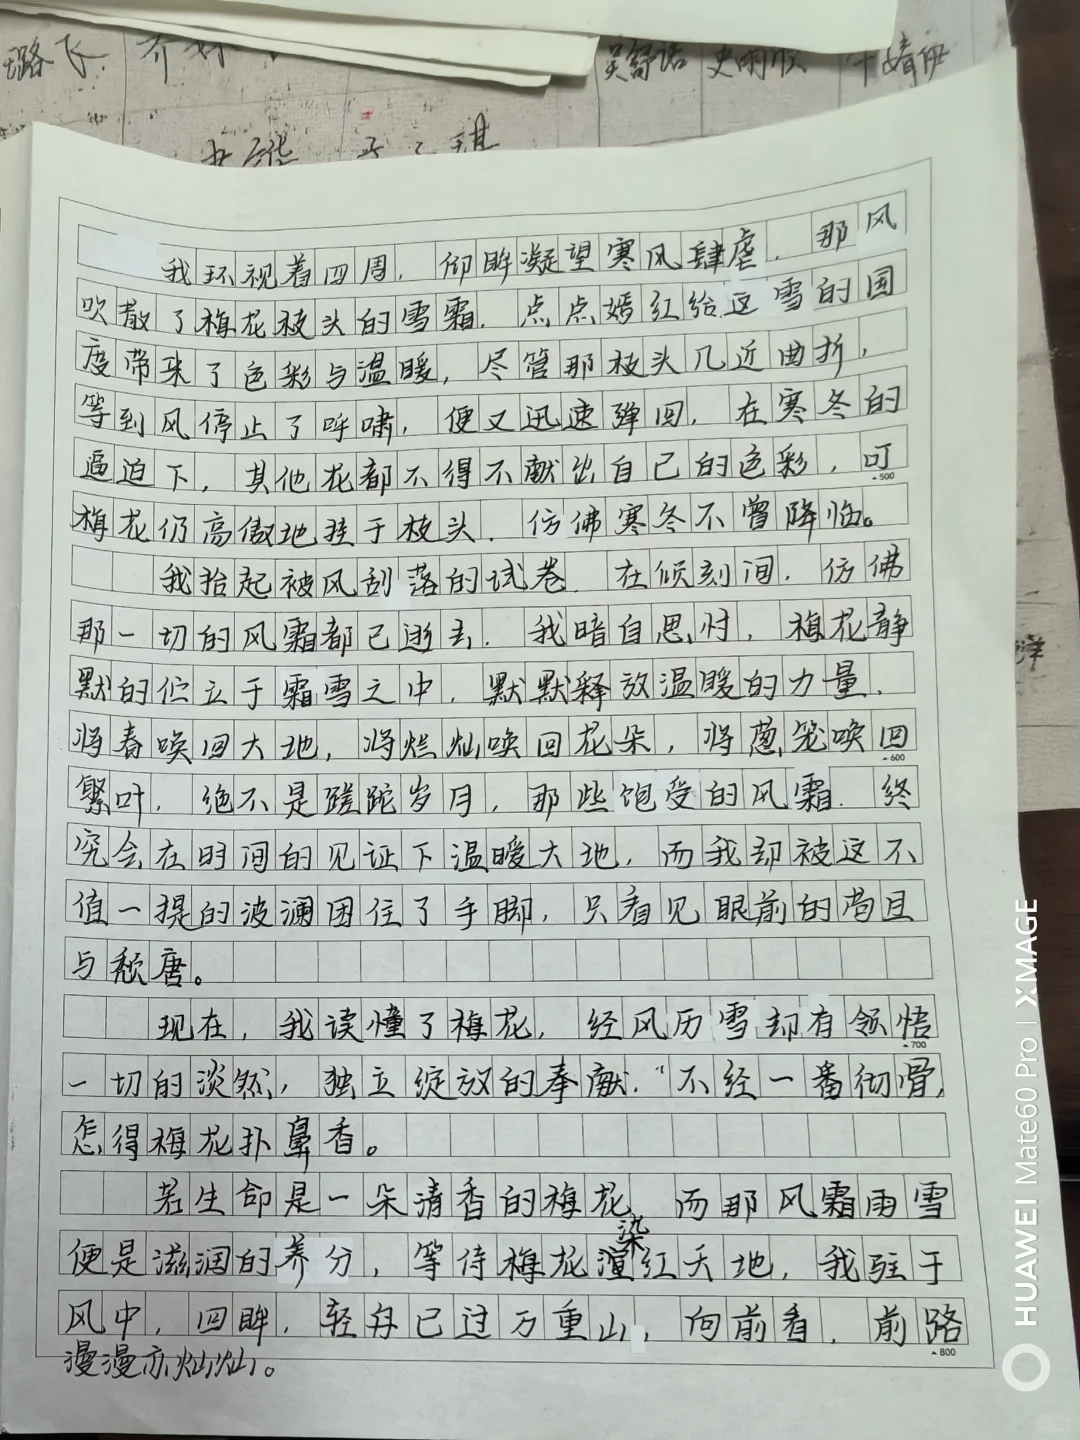 吴舒
我环视着四周，仰眸凝望寒风肆虐，那风
吹散了梅花枝头的雪霜，点点嫣红给这雪的国
度带来了色彩与温暖，尽管那枝头几近曲折，
等到风停止了呼啸，便又迅速弹回，在寒冬的
逼迫下，其他花都不得不献出自己的色彩，可
500
梅花仍高傲地挂于枝头，仿佛寒冬不曾降临。
我抬起被风刮落的试卷，在倾刻间，仿佛
那一切的风霜都已逝去，我暗自思忖，梅花静
默的伫立于霜雪之中，默默释放温暖的力量，
将春唤回大地，将烂灿唤回花朵，将葱笼唤回
600
繁叶，绝不是蹉跎岁月，那些饱受的风霜，终
究会在时间的见证下温暖大地，而我却被这不
值一提的波澜困住了手脚，只看见眼前的苟且
与颓唐。
现在，我读懂了梅花，经风历雪却有领悟
700
一切的淡然，独立绽放的奉献，“不经一番彻骨，
怎得梅花扑鼻香。
若生命是一朵清香的梅花，而那风霜雨雪
便是滋润的养分，等待梅花渲染红天地，我驻于
风中，回眸，轻舟已过万重山，向前看，前路
800
漫漫亦灿灿。
HUAWEI Mate60 Pro | XMAGE